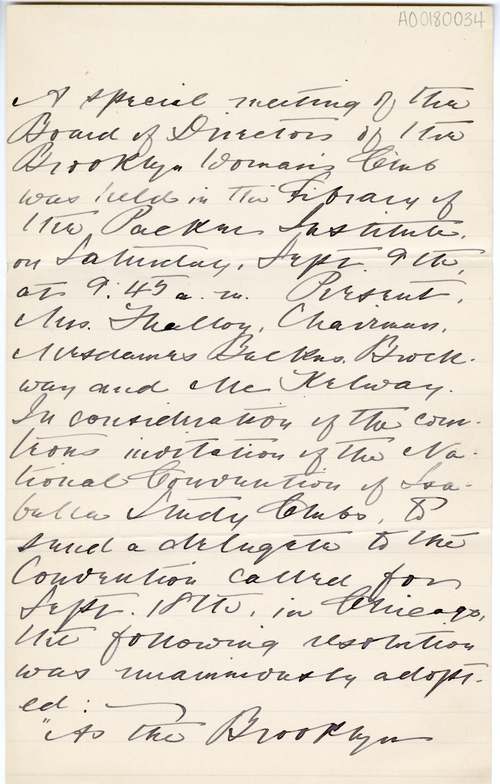 A00180034
A special meeting of the
Board of Directors of the
Brooklyn Woman's Club
was held in the Library of
the Packer Institute,
on Saturday, Sept. 9th,
at 9:45 a.m. Present,
Mrs. Thallon, Chairman,
Mesdames Backus, Brock-
way and Mc Kelway.
In consideration of the cour-
teous invitation of the Na-
tional Convention of Isa-
bella Study Clubs, to
send a delegate to the
Convention called for
Sept. 18th, in Chicago,
the following resolution
was unanimously adopt-
ed:
"As the Brooklyn